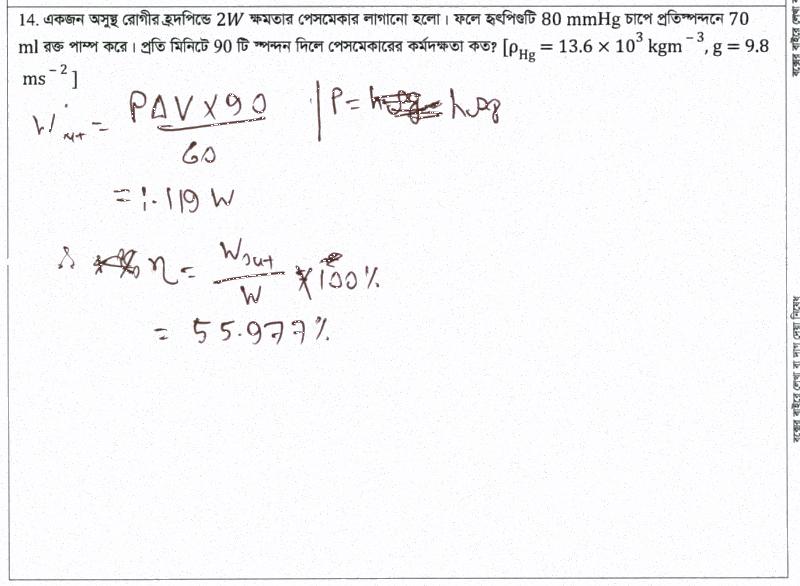 14. একজন অসুস্থ রোগীর হৃদপিন্ডে 2W ক্ষমতার পেসমেকার লাগানো হলো। ফলে হৃৎপিণ্ডটি 80 mmHg চাপে প্রতিস্পন্দনে 70
ml রক্ত পাম্প করে। প্রতি মিনিটে 90 টি স্পন্দন দিলে পেসমেকারের কর্মদক্ষতা কত? [ρHg = 13.6 × 10³ kgm⁻³, g = 9.8
ms⁻²]
Wout = PΔV×90 / 60 | P = hρg
= 1.119 W
∴ η = Wout / W × 100%
= 55.977%